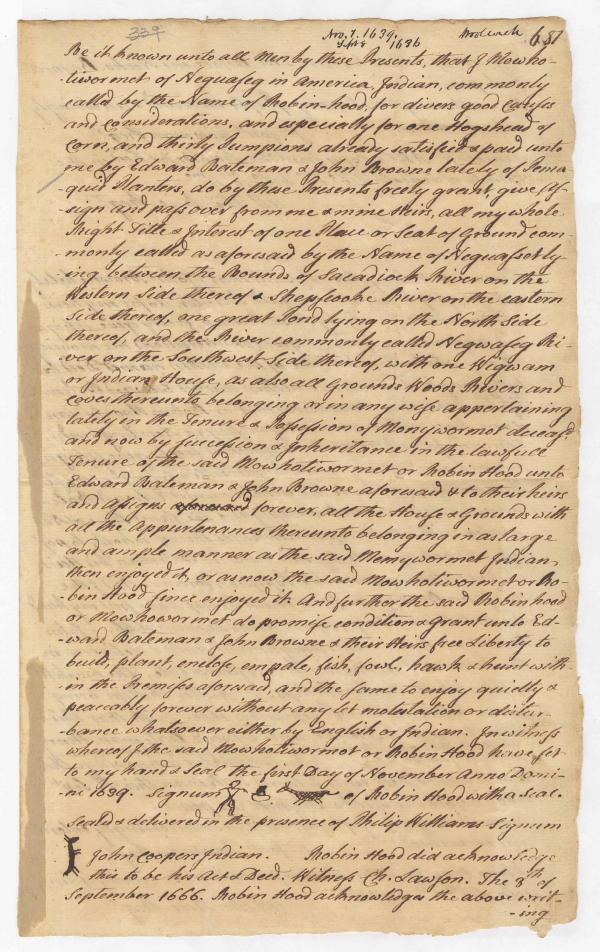 339
Nov. 1. 1639.
Sept. 8 1666
Woolwich
687
Be it known unto all Men by these Presents, that I Mowho-
-tiwormet of Neguaseg in America, Indian, commonly
called by the Name of Robin-hood, for divers good Causes
and Considerations, and especially for one Hogshead of
Corn, and thirty Pumpions already satisfied & paid unto
me by Edward Bateman & John Browne lately of Pema-
-quid Planters, do by these Presents freely grant, give As-
-sign and pass over from me & mine Heirs, all my whole
Right Title & Interest of one Place or Seat of Ground com-
-monly called as aforesaid by the Name of Neguasset ly-
ing between the Bounds of Sacadiock River on the
Western Side thereof & Shepscooke River on the eastern
Side thereof, one great Pond lying on the North Side
thereof, and the River commonly called Negwaseg Ri-
-ver on the Southwest Side thereof, with one Wigwam
or Indian House, as also all Grounds Woods Rivers and
coves thereunto belonging or in any wise appertaining
lately in the Tenure & Possession of Monywormot deceas'd
and now by succession & Inheritance in the lawfull
Tenure of the said Mowhotiwormet or Robin Hood unto
Edward Bateman & John Browne aforesaid & to their heirs
and assigns aforesaid forever, all the House & Grounds with
all the Appurtenances thereunto belonging in as large
and ample manner as the said Menywormet Indian,
then enjoyed it, or as now the said Mowhotiwormet or Ro-
-bin Hood since enjoyed it. And further the said Robinhood
or Mowhowormet do promise condition & grant unto Ed-
-ward Bateman & John Browne & their Heirs free Liberty to
build, plant, enclose, empale, fish, fowl, hawk & hunt with-
-in the Premises aforesaid, and the same to enjoy quietly &
peaceably forever without any let molestation or distur-
-bance whatsoever either by English or Indian. In witness
whereof I the said Mowhotiwormot or Robin Hood have set
to my hand & Seal the first Day of November Anno Domi-
-ni 1639. Signum of Robin Hood with a Seal.
Seald & delivered in the presence of Philip Williams Signum
John Coopers Indian. Robin Hood did acknowledge
this to be his Act & Deed. Witness Ch. Lawson. The 8th of
September 1666. Robin Hood acknowledges the above writ-
-ing